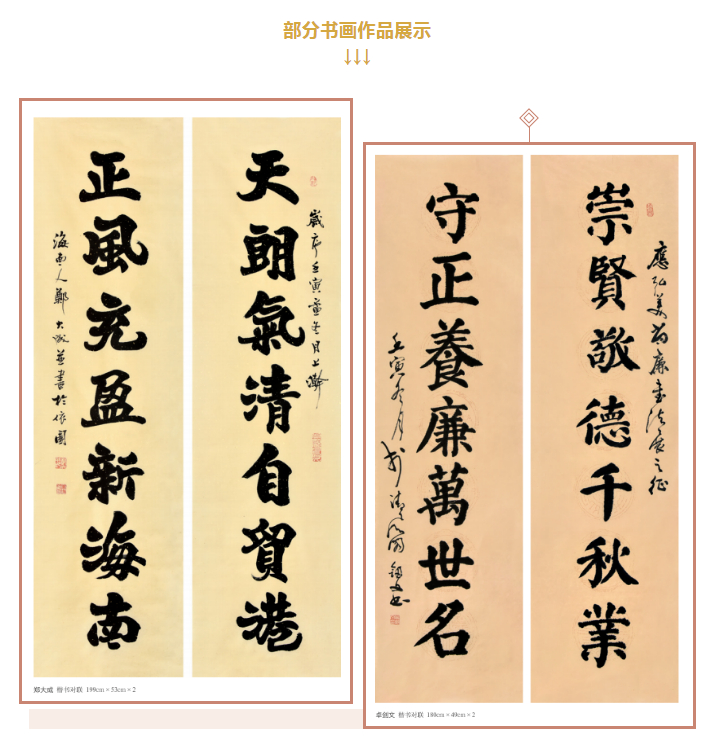 部分书画作品展示
↓↓↓
天朗氣清自貿港
歲序壬寅冬月上澣
正風充盈新海南
海南人鄭大威並書於
郑大威 楷书对联 199cm×53cm×2
應弘美尚廉書法展之征
崇賢敬德千秋業
守正養廉萬世名
壬寅冬月於清風閣劍文書
卓剑文 楷书对联 180cm×49cm×2